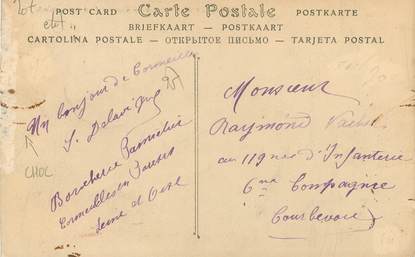 POST CARD Carte Postale POSTKARTE
BRIEFKAART — POSTKAART
CARTOLINA POSTALE — ОТКРЫТОЕ ПИСЬМО — TARJETA POSTAL
Un bonjour de Cormeilles
Boucherie
Cormeilles en Parisis
Seine et Oise
CHOC
Monsieur
Raymond
au 119 Infanterie
6me Compagnie
Courbevoie